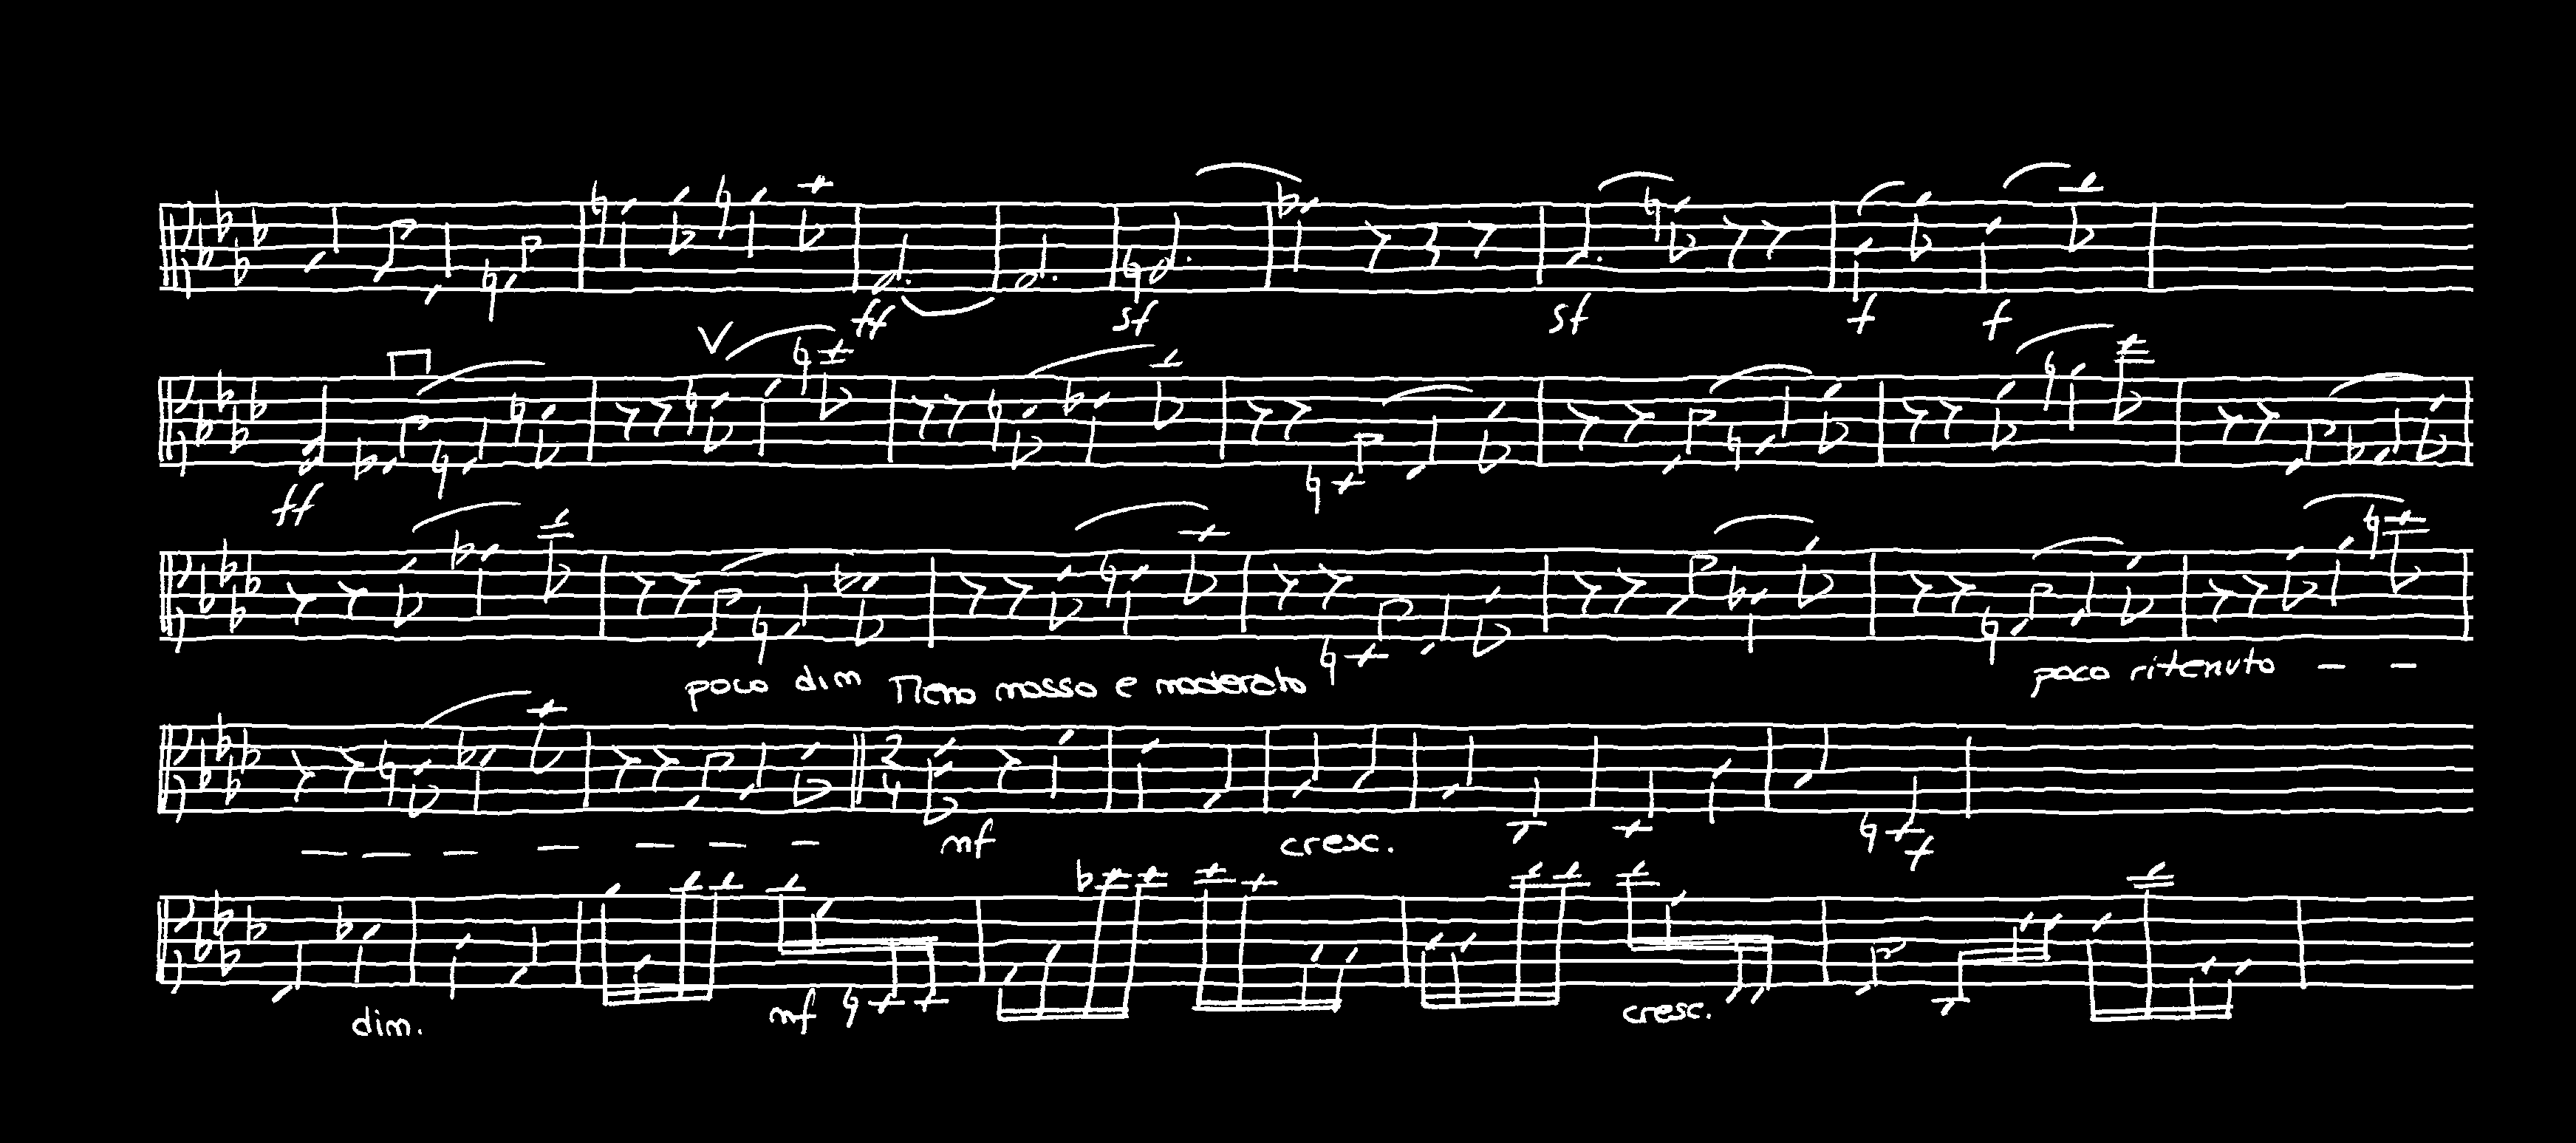 ff sf sf f f
V
ff
poco dim Meno mosso e moderato poco ritenuto - -
2
4
mf cresc. f
dim. mf cresc.